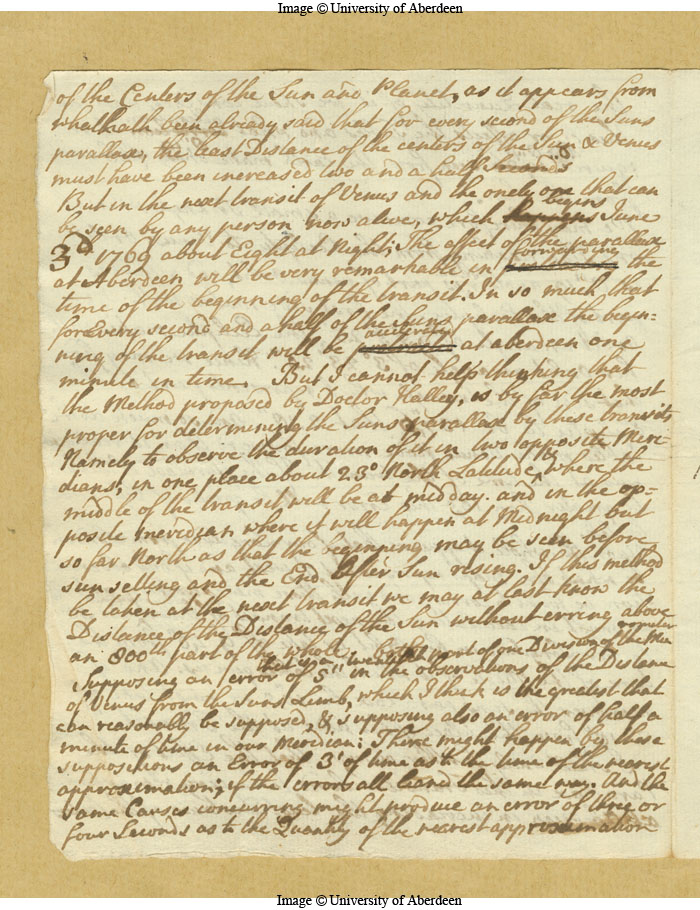 Image © University of Aberdeen
of the Centers of the Sun and Planet, as it appears from
what hath been already said that for every second of the Suns
parallax, the least Distance of the centers of the Sun & Venus
must have been increased two and a half Seconds
But in the next transit of Venus and the onely one that can
begins
be seen by any person now alive, which happens June
3d 1769 about Eight at Night; The effect of the parallax
forwarding
at Aberdeen will be very remarkable in the
time of the beginning of the transit. In so much that
for Every second and a half of the Suns parallax the begin-
accelerated
ning of the transit will be at aberdeen one
minute in time. But I cannot help thinking that
the Method proposed by Doctor Halley, is by far the most
proper for determining the Suns parallax by these transits
Namely to observe the duration of it in two opposite Meri-
dians, in one place about 23° North Latitude, where the
middle of the transit, will be at midday. and in the op=
posite meridian where it will happen at Midnight but
so far North as that the beginning may be seen before
sun setting and the End after Sun rising. If this method
be taken at the next transit we may at last know the
Distance of the Distance of the Sun without erring above
an 800th part of the whole
that is a twentieth part of one Division of the Micrometer
Supposing an error of 5" in the observations of the Distance
of Venus from the Suns Limb, which I think is the greatest that
can reasonably be supposed, & supposing also an error of half a
minute of time in our Meridian: There might happen by these
suppositions an Error of 3' of time as to the time of the nearest
approximation; if the errors all leand the same way. And the
same Causes concurring might produce an error of three or
four Seconds as to the Quantity of the nearest approximation
Image © University of Aberdeen